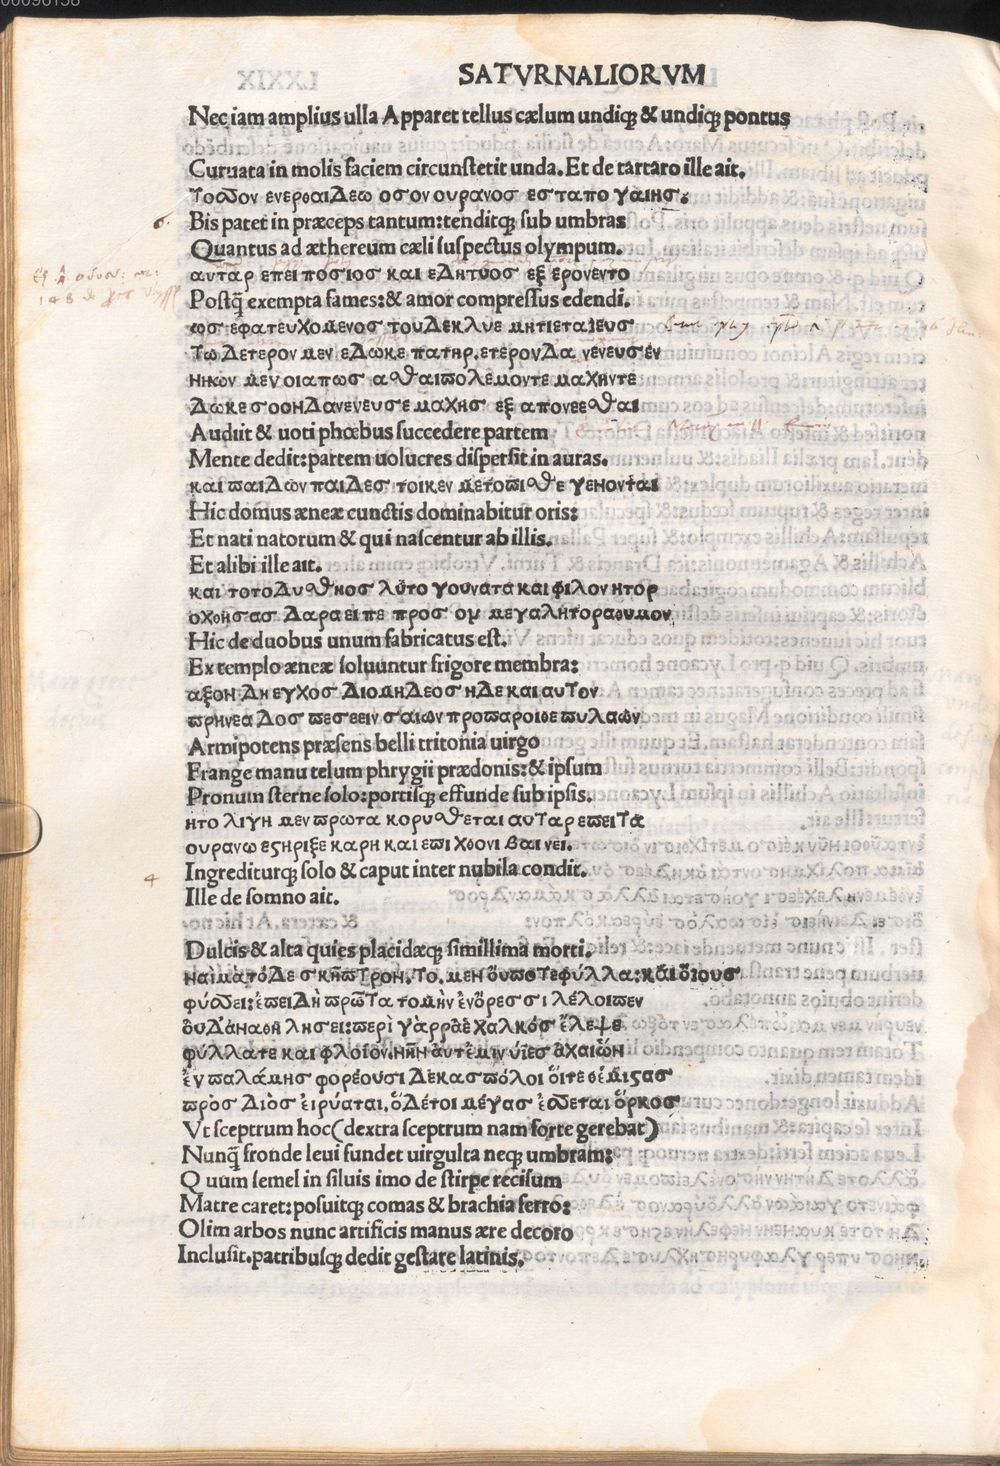 SATVRNALIORVM
Nec iam amplius ulla Apparet tellus cælum undiqꝫ & undiqꝫ pontus
Curuata in molis faciem circunstetit unda. Et de tartaro ille ait.
Τοσσον ενερθαιΔεω οσον ουρανοσ εσταπο γαιησ.
Bis patet in præceps tantum: tenditqꝫ sub umbras
Quantus ad æthereum cæli suspectus olympum.
αυταρ επει ποσιοσ και εΔητυοσ εξ ερονεντο
Postq̃ exempta fames: & amor compressus edendi.
ωσ εφατευχομενοσ τουΔεκλυε μητιεταζευσ
Τω Δετερον μεν εΔωκε πατηρ. ετερονΔα νενευσεν
Δωκε σοοηΔανενευσε μαχησ εξ απονεεσθαι
Audiit & uoti phœbus succedere partem
Mente dedit: partem uolucres dispersit in auras.
και παιΔων παιΔεσ τοικεν μετοπισθε γενονται
Hic domus æneæ cunctis dominabitur oris:
Et nati natorum & qui nascentur ab illis.
Et alibi ille ait.
και τοτοΔυσθηοσ λυτο γουνατα και φιλον ητορ
οχθησασ Δαρα ειπε προσ ομ μεγαλητοραθυμον
Hic de duobus unum fabricatus est.
Ex templo æneæ soluuntur frigore membra:
αξον Δη εγχοσ ΔιομηΔεοσ ηΔε και αυτον
πρηνεα Δοσ πεσεειν σαιων προπαροιθε πυλαων
Armipotens præsens belli tritonia uirgo
Frange manu telum phrygii prædonis: & ipsum
Pronum sterne solo: portisqꝫ effunde sub ipsis.
ητο λιγη μεν πρωτα κορυσθεται αυταρ επειτα
ουρανω εςηριξε καρη και επι χθονι βαινει.
Ingrediturqꝫ solo & caput inter nubila condit.
4
Ille de somno ait.
Dulcis & alta quies placidæqꝫ simillima morti.
ναίματόΔε σκῆπτρον. Το. μεν ούποτεφύλλα: καὶ ὄζουσ
φύσσει: ἐπειΔὴ πρῶτα τομὴν ἐνόρεσσι λέλοιπεν
ὀυΔ'ἀναθη λησει: περὶ γὰρραὲ χαλκόσ ἔλεψε
φύλλατε και φλοῖον. ηῆν ἀυτέμιν υἷεσ ἀχαιῶν
ἐν παλάμησ φορέουσι Δεκασπόλοι ὅιτε θέμιςασ
πρὸσ Διὸσ ἐιρύαται. ὅΔέτοι μέγασ ἔσσεται ὅρκοσ
Vt sceptrum hoc (dextra sceptrum nam forte gerebat)
Nunq̃ fronde leui fundet uirgulta neqꝫ umbram:
Quum semel in siluis imo de stirpe recisum
Matre caret: posuitqꝫ comas & brachia ferro:
Olim arbos nunc artificis manus ære decoro
Inclusit. patribusqꝫ dedit gestare latinis.